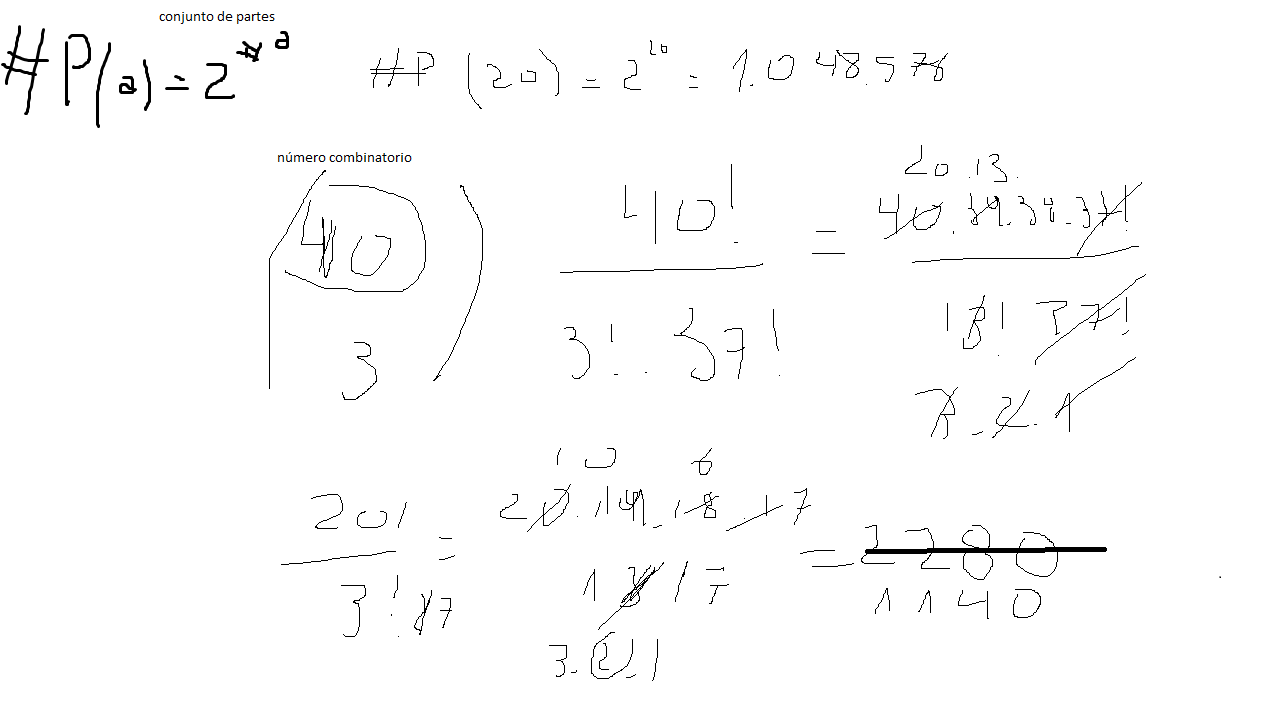 conjunto de partes
#P(a) = 2^#a
#P (20) = 2^20 = 1.048.576
número combinatorio
(40 3)
40! / 3! . 37! = 40 . 39 . 38 . 37! / 3! 37!
20 . 13 .
3 . 2 . 1
20! / 3! 17 = 20 . 19 . 18 . 17 / 3 17 = 2280
10 6
3 . 2 . 1
1140